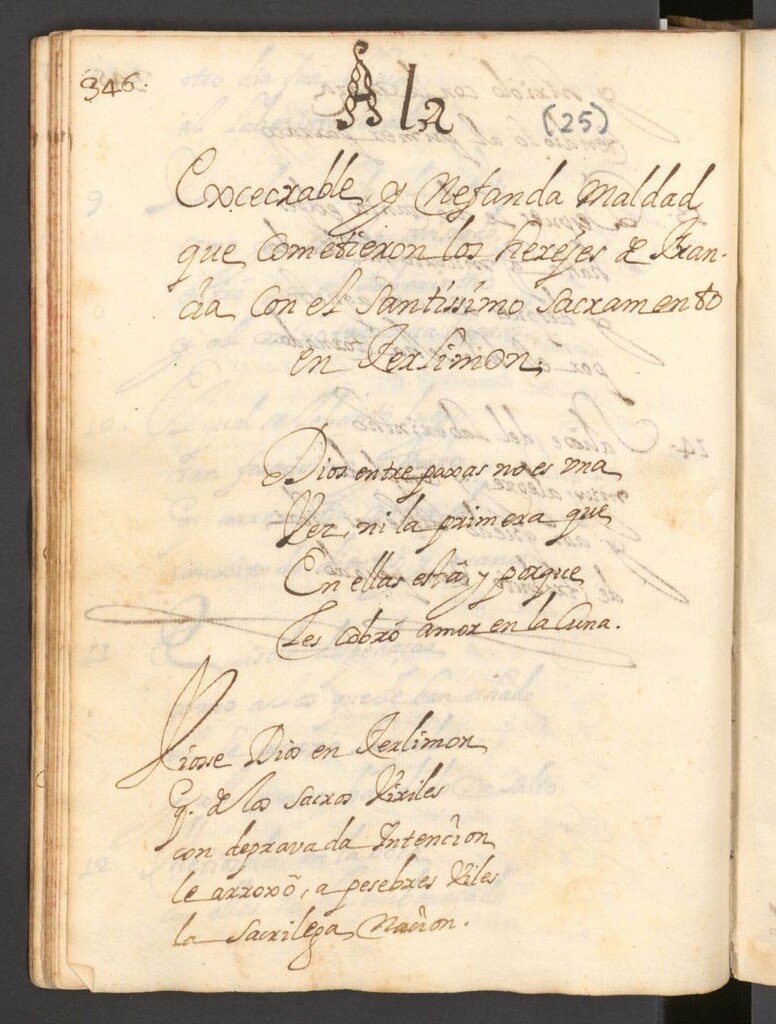 346.
A la
(25)
Excecrable, y Nefanda Maldad
que Cometieron los herejes de Fran-
cia Con el Santissimo Sacramento
en Terlimon,
Dios entre paxas no es una
Vez, ni la primera que
En ellas está, y porque
Les Cobró amor en la Cuna.
Viosse Dios en Terlimon
q. de los Sacros Viriles
con depravada Intencion
le arroxó, a pesebres Viles
la Sacrilega, Nacion.